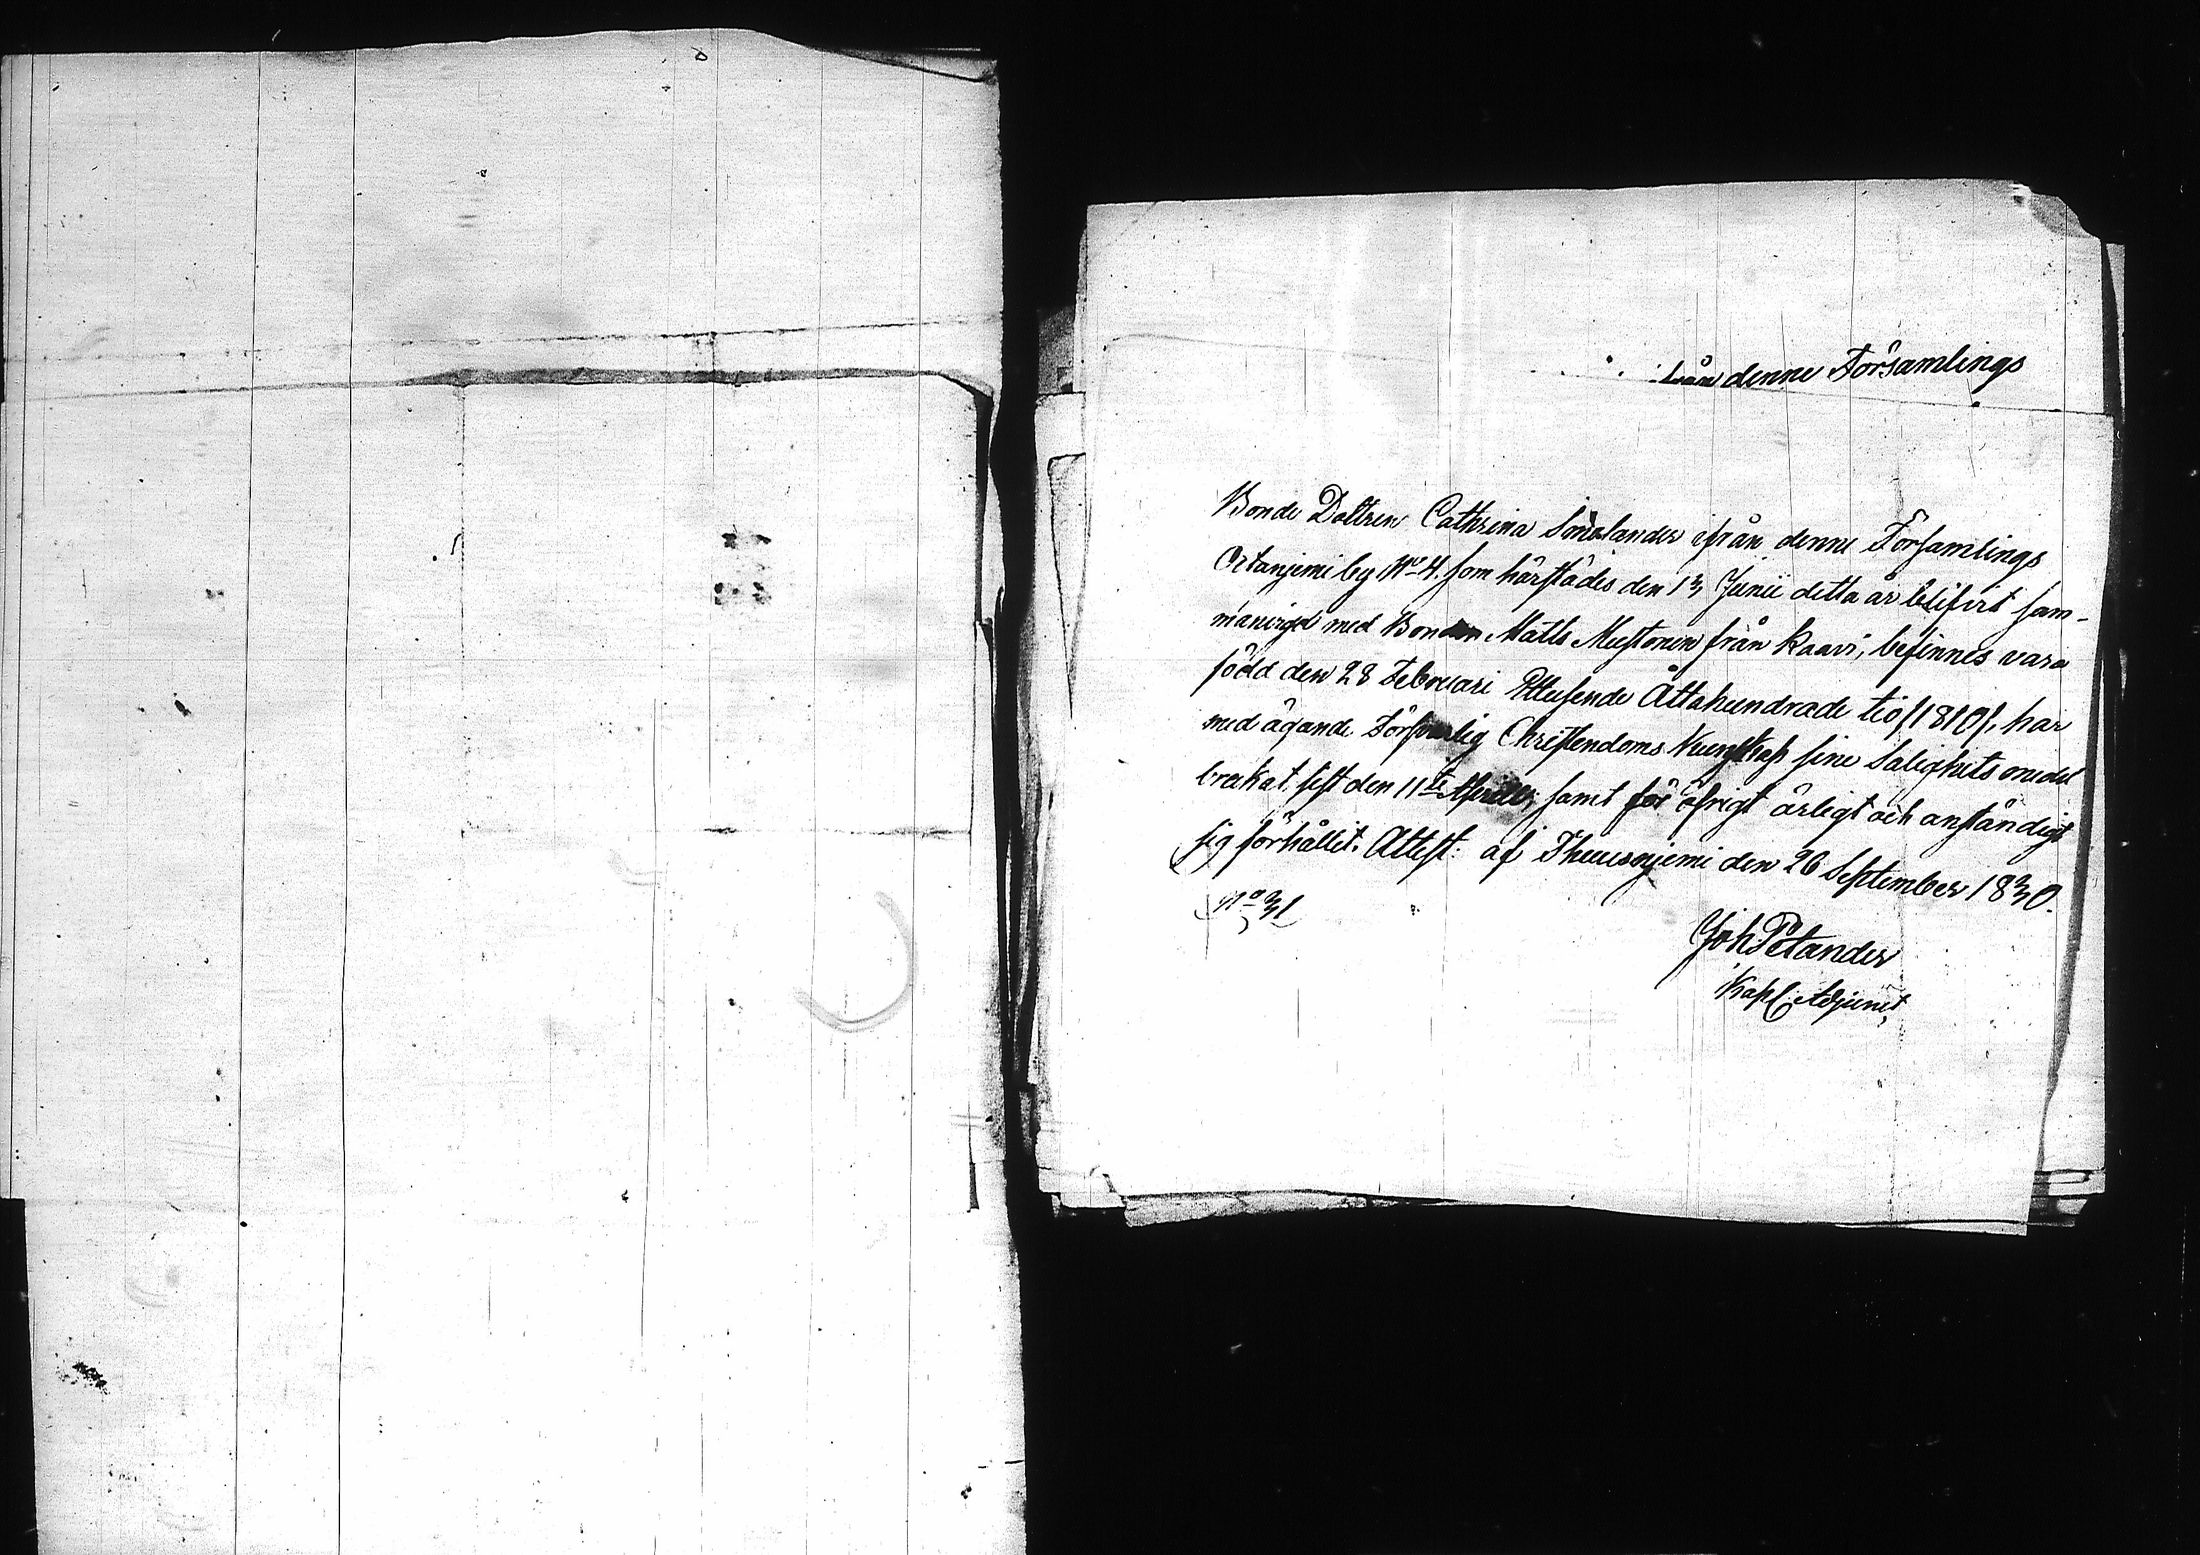 från denne Församlings
Bonde Dottren Cathrina Smålander ifrån denne Församlings
Ortanjemi by No 4, som härstädes den 13 Junii detta år blifvit sam-
manvigd med Bonden Matts Mustonen från Kaavi, befinnes vara
född den 28 Februari Ettusende Åttahundrade tio /1810/, har
med ägande Försvarlig Christendoms Kunskap sine Salighets medel
brukat sist den 11te Aprill, samt för öfrigt ärligt och anständigt
sig förhållit. Attest: af Thuusnjemi den 26 September 1830.
No 31
Joh Petander
Kapl. Adjunct,